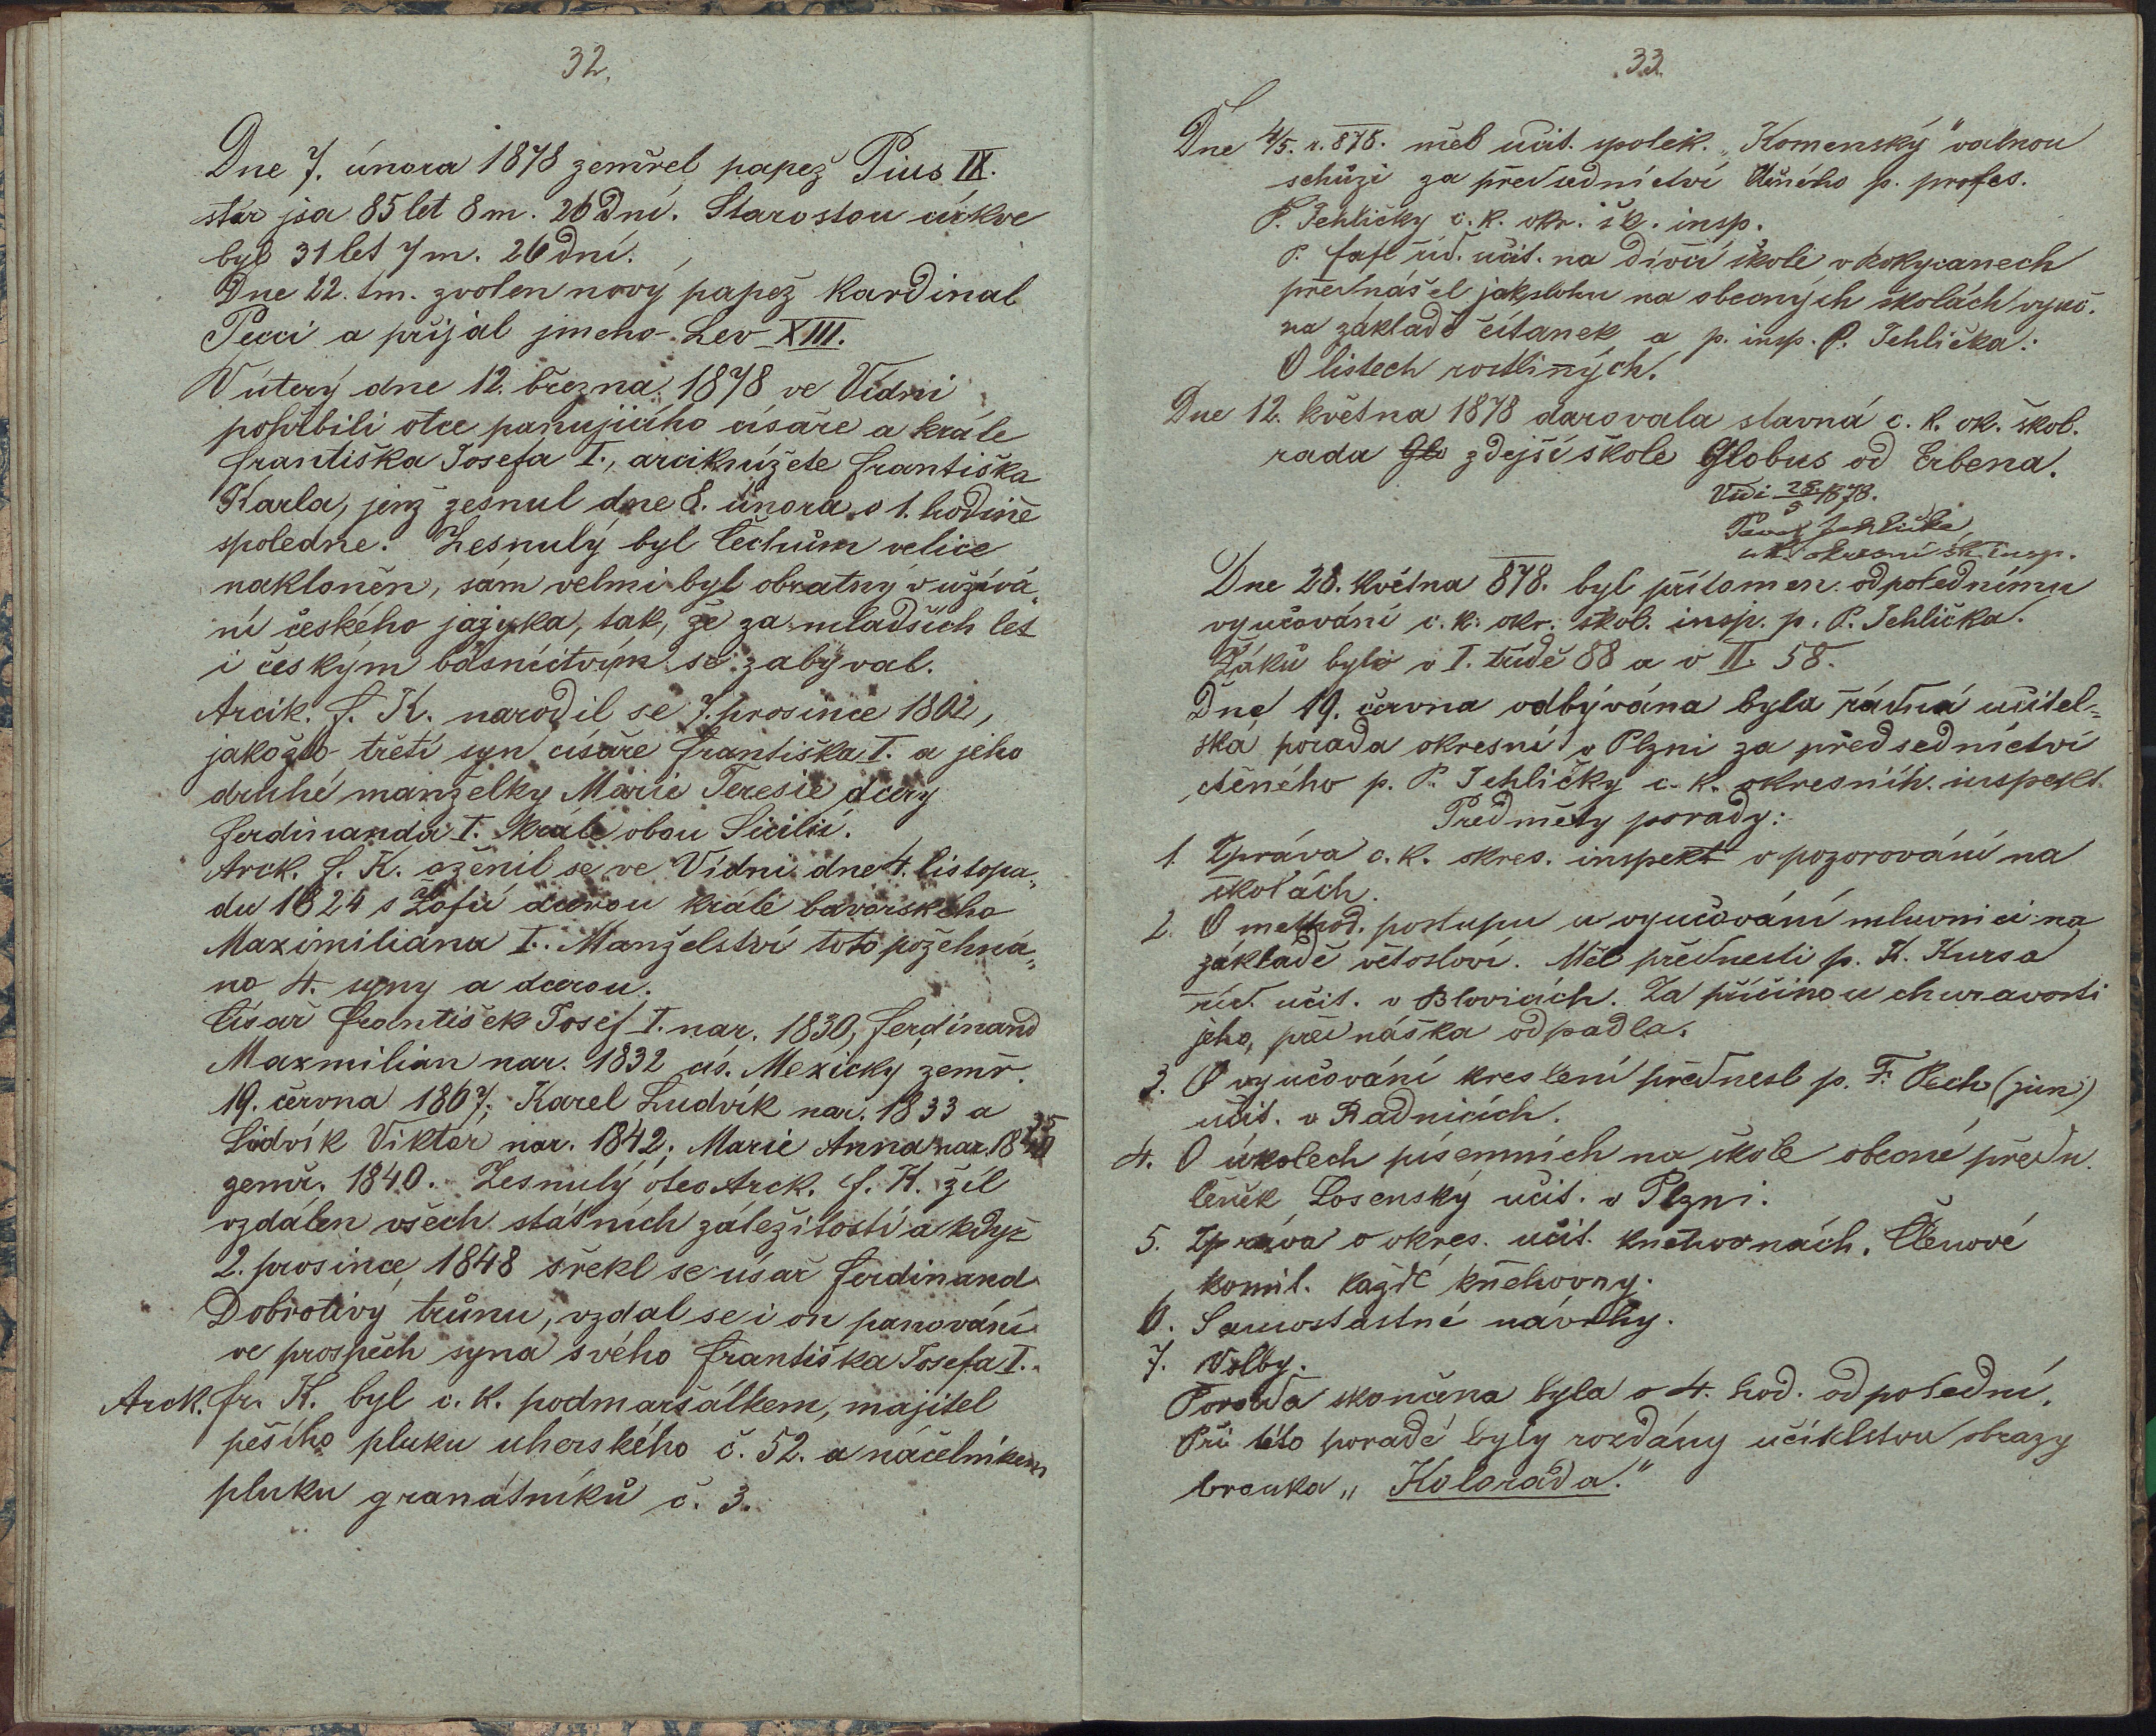 32.
Dne 7. února 1878 zemřel papež Pius IX.
stár jsa 85 let 8 m. 26 dní. Starostou církve
byl 31 let 7 m. 26 dní.
Dne 22. t.m. zvolen nový papež Kardinal
Pecci a přijal jmeno Lev XIII.
V úterý dne 12. března 1878 ve Vídni
pohřbili otce panujícího císaře a krále
Františka Josefa I., arciknížete Františka
Karla, jenž zesnul dne 8. února o 1. hodině
spoledne. Zesnulý byl Čechům velice
nakloněn, sám velmi byl obratný v užívá„
ní českého jazyka, tak, že za mladších let
i českým básnictvím se zabýval.
Arcik. F. K. narodil se 7. prosince 1802,
jakožto třetí syn císaře Františka I. a jeho
druhé manželky Marie Teresie dcery
Ferdinanda I. krále obou Sicilií.
Arck. F. K. oženil se ve Vídni dne 4. listopa„
du 1824 s Žofií dcerou krále bavorského
Maximiliána I. Manželství toto požehná„
no 4. syny a dcerou.
Císař František Josef I. nar. 1830, Ferdinand
Maxmilian nar. 1832 cís. Mexický zemř.
19. června 1867; Karel Ludvík nar. 1833 a
Ludvík Viktor nar. 1842; Marie Anna nar. 1835
zemř. 1840. Zesnulý otec Arck. F. K. žil
vzdálen všech státních záležitostí a když
2. prosince 1848 zřekl se císař Ferdinand
Dobrotivý trůnu, vzdal se i on panování
ve prospěch syna svého Františka Josefa I.
Arck. Fr. K. byl c. k. podmaršálkem, majitel
pěšího pluku uherského č. 52. a náčelníkem
pluku granátníků č. 3.
33.
Dne 4/5. r. 878. měl učit. spolek. „Komenský" valnou
schůzi za předsednictví Ctěného p. profes.
P. Jehličky c. k. okr. šk. insp.
P. Fafl říd. učit. na dívčí škole v Rokycanech
přednášel jak slohu na obecných školách vyuč.
na základě čítanek a p. insp. P. Jehlička:
O listech rostliných.
Dne 12. května 1878 darovala slavná c. k. ok. škol.
rada Glo zdejší škole Globus od Erbena.
Vidi 28/5 1878.
Pavel Jehlička,
c. k. okresní šk. insp.
Dne 28. května 878. byl přítomen odpolednímu
vyučování c. k. okr. škol. insp. p. P. Jehlička.
Žáků bylo v I. třídě 88 a v II. 58.
Dne 19. června odbývána byla řádná učitel„
ská porada okresní v Plzni za předsednictví
ctěného p. P. Jehličky c. k. okresních. inspekt.
Předměty porady:
1. Zpráva c. k. okres. inspekt o pozorování na
školách.
2. O method. postupu u vyučování mluvnici na
základě větosloví. Měl přednesti p. K. Kursa
říd. učit. v Blovicích. Za příčinou churavosti
jeho, přednáška odpadla.
3. O vyučování kreslení přednesl p. F. Pech (jun)
učit. v Radnicích.
4. O úkolech písemních na škole obecné předn.
Losenský učit. v Plzni.
5. Zpráva o okres. učit. knihovnách. Členové
komit. každé knihovny.
6. Samostastné návrhy.
7. Volby.
Porada skončena byla o 4. hod. odpolední.
Při této poradě byly rozdány učitelstvu obrazy
brouka „Kolorada."